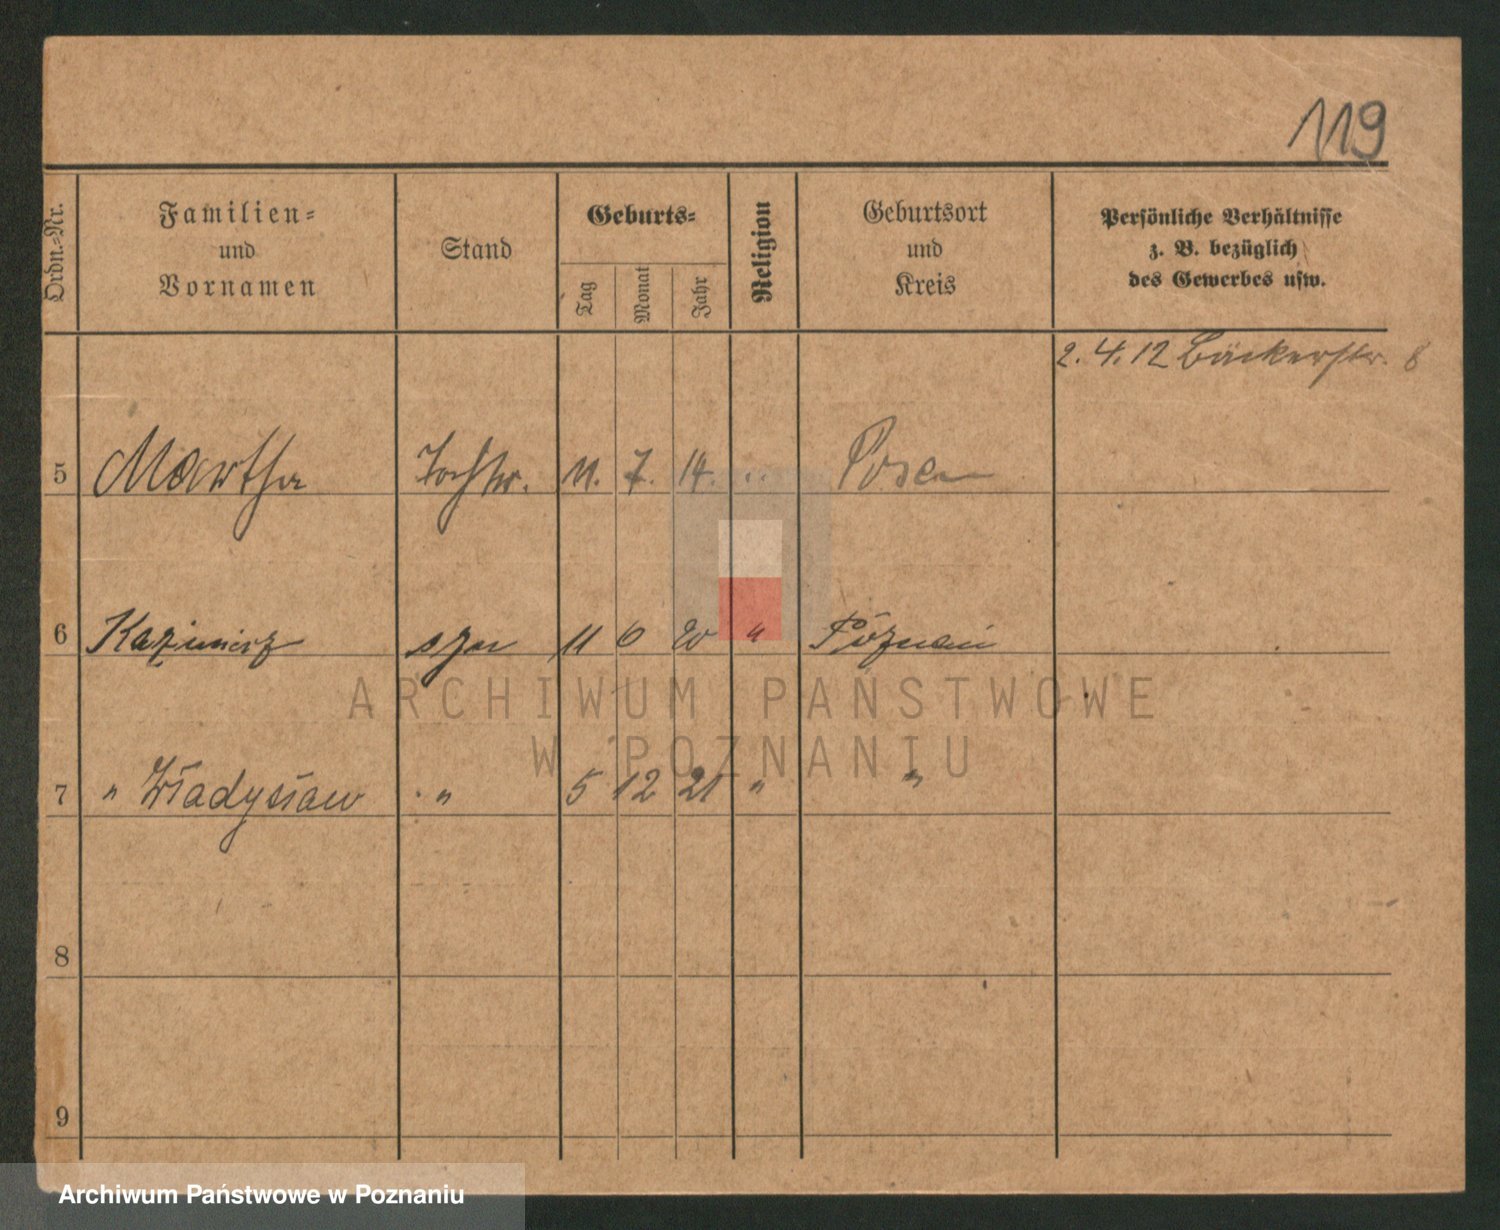 119
Ordn.-Nr.
Familien-
und
Vornamen
Stand
Geburts-
Tag
Monat
Jahr
Religion
Geburtsort
und
Kreis
Persönliche Verhältnisse
z. B. bezüglich
des Gewerbes usw.
2. 4. 12 Bäckerstr. 8
5 Martha Tochter. 11. 7. 14. " Posen
6 Kazimierz syn 11 6 20 " Poznań
7 " Władysław " 5 12 21 " "
ARCHIWUM PAŃSTWOWE
W POZNANIU
8
9
Archiwum Państwowe w Poznaniu